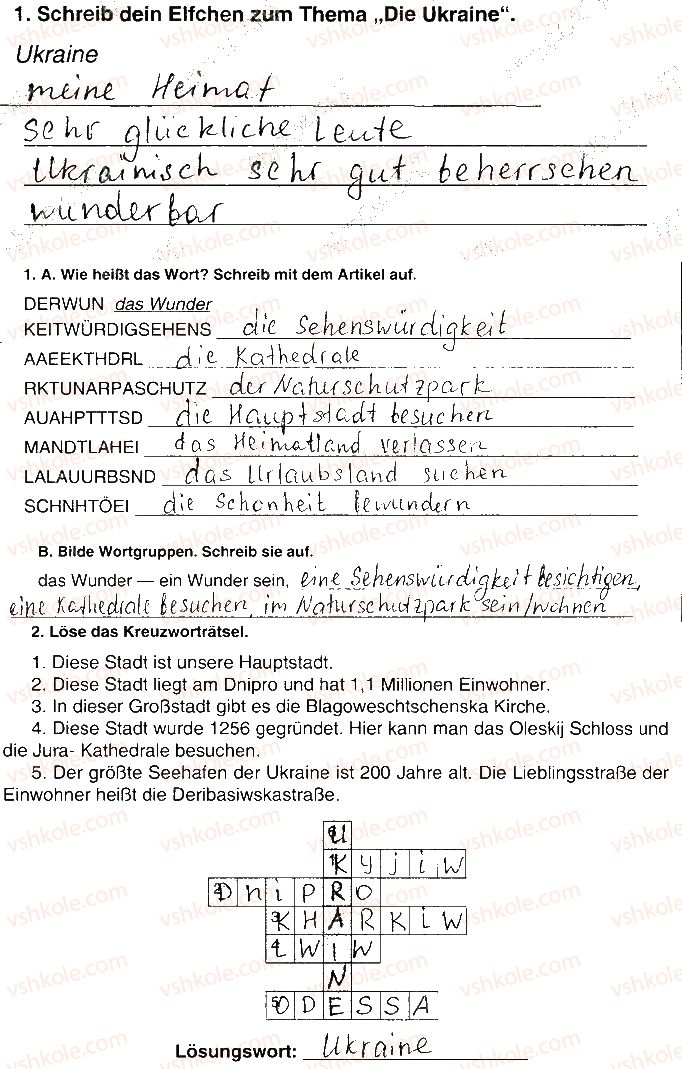 1. Schreib dein Elfchen zum Thema „Die Ukraine“.
Ukraine
meine Heimat
sehr glückliche Leute
Ukrainisch sehr gut beherrschen
wunderbar
1. A. Wie heißt das Wort? Schreib mit dem Artikel auf.
DERWUN das Wunder
KEITWÜRDIGSEHENS die Sehenswürdigkeit
AAEEKTHDRL die Kathedrale
RKTUNARPASCHUTZ der Naturschutzpark
AUAHPTTTSD die Hauptstadt besuchen
MANDTLAHEI das Heimatland verlassen
LALAUURBSND das Urlaubsland suchen
SCHNHTÖEI die Schonheit bewundern
B. Bilde Wortgruppen. Schreib sie auf.
das Wunder — ein Wunder sein, eine Sehenswürdigkeit besichtigen,
eine Kathedrale besuchen, im Naturschutzpark sein/wohnen
2. Löse das Kreuzworträtsel.
1. Diese Stadt ist unsere Hauptstadt.
2. Diese Stadt liegt am Dnipro und hat 1,1 Millionen Einwohner.
3. In dieser Großstadt gibt es die Blagoweschtschenska Kirche.
4. Diese Stadt wurde 1256 gegründet. Hier kann man das Oleskij Schloss und
die Jura- Kathedrale besuchen.
5. Der größte Seehafen der Ukraine ist 200 Jahre alt. Die Lieblingsstraße der
Einwohner heißt die Deribasiwskastraße.
U
1 K y j i w
2 D n i p R O
3 K H A R K i W
4 L W I W
N
5 O D E S S A
Lösungswort: Ukraine